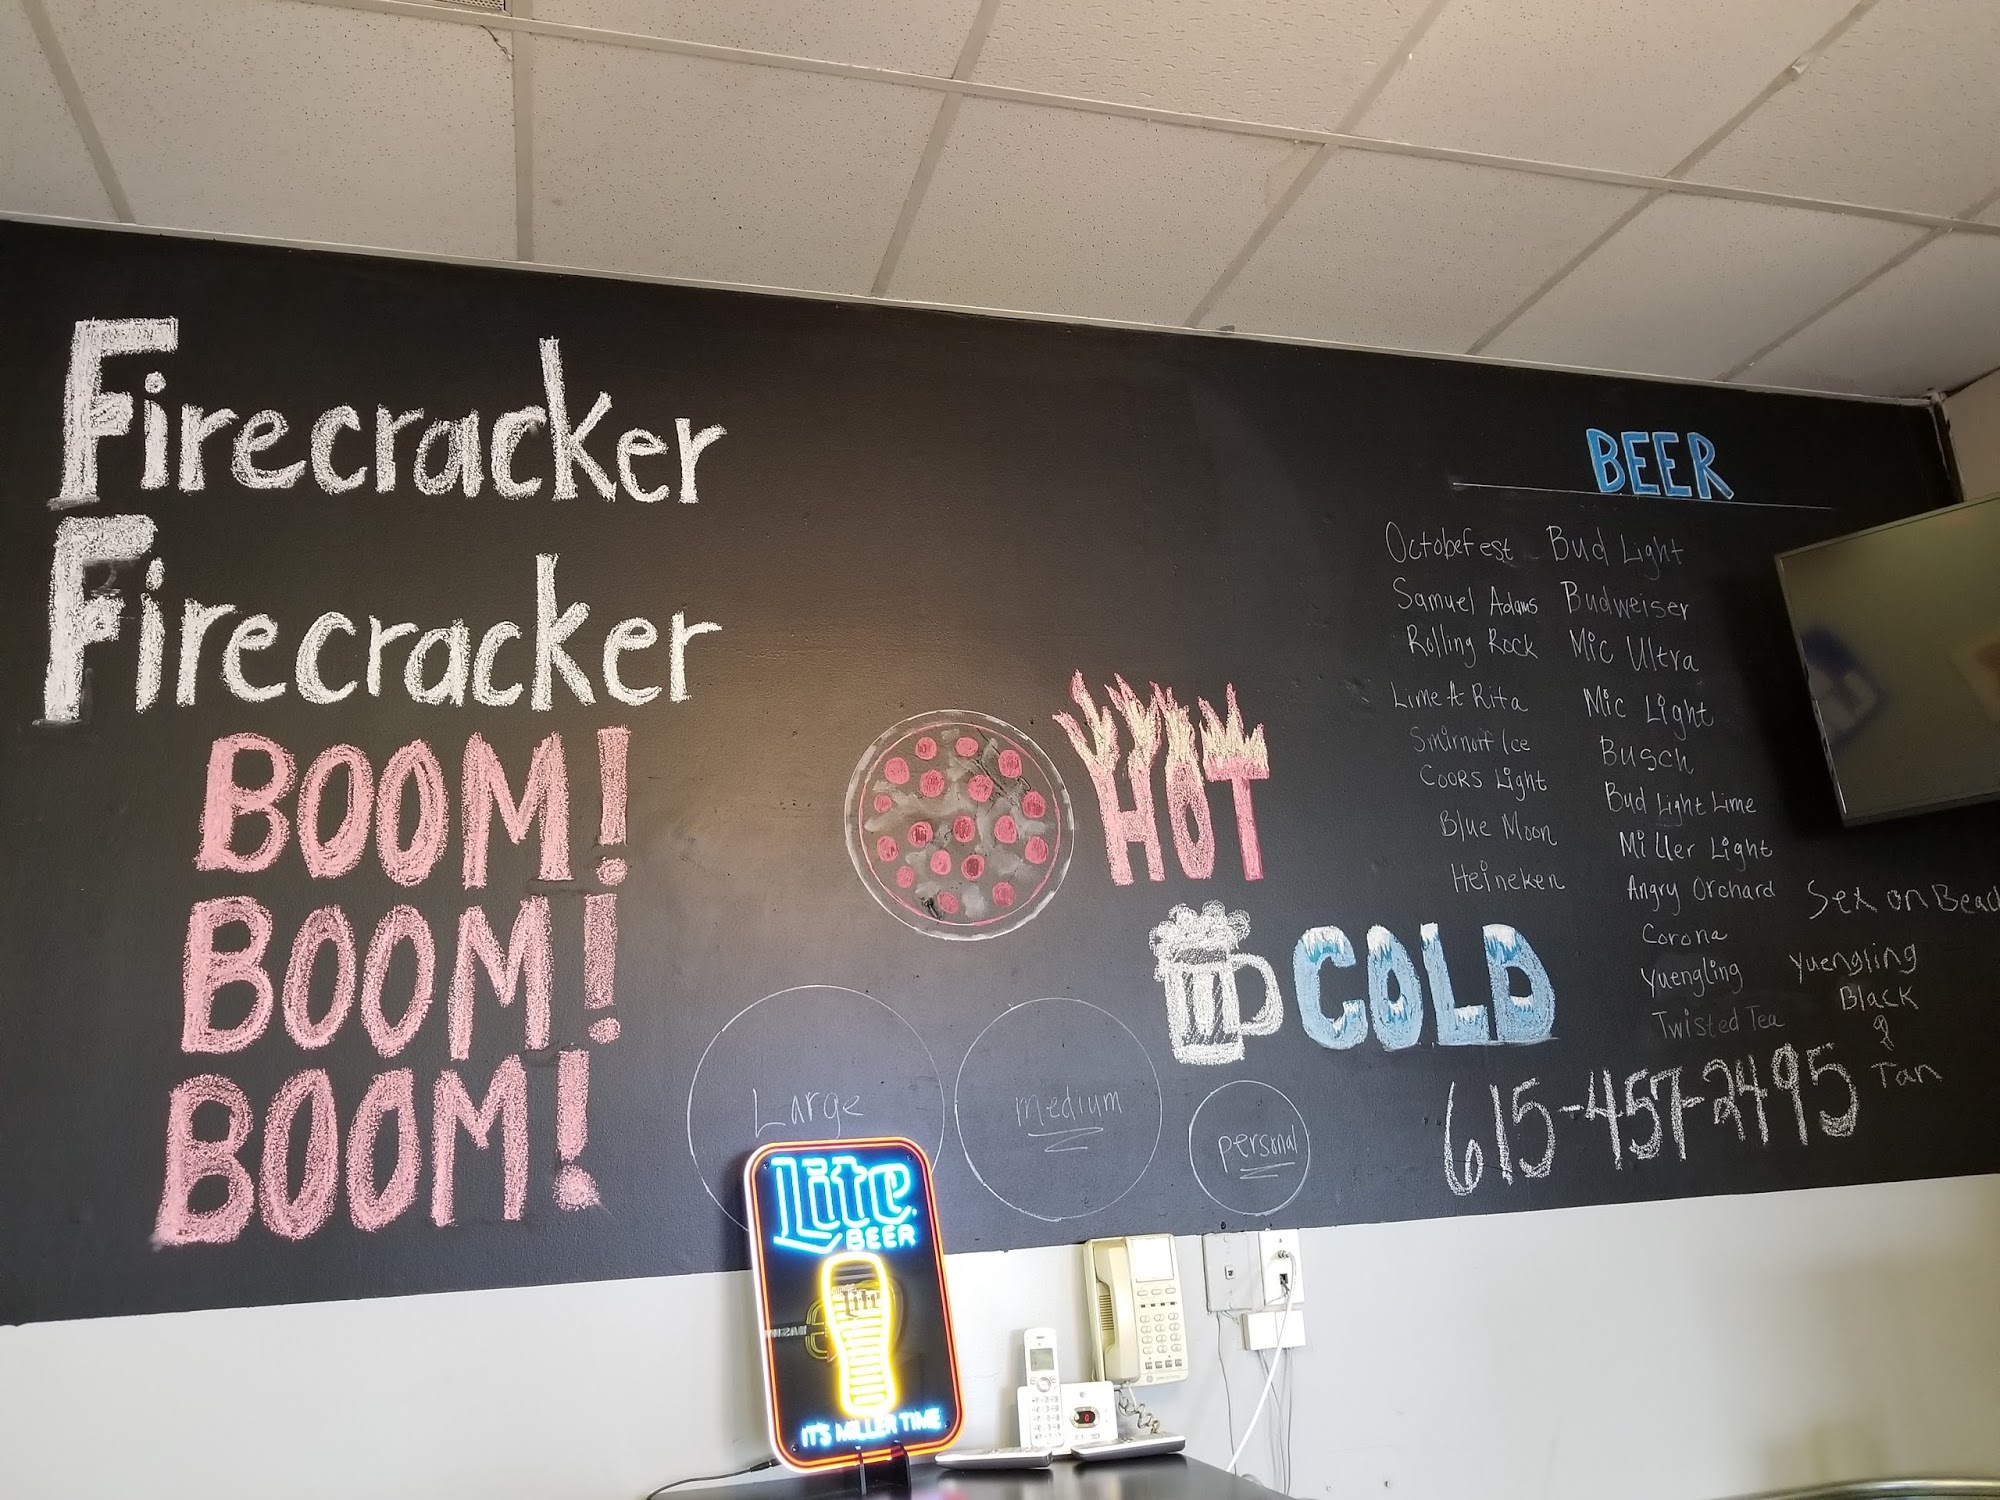 Firecracker
Firecracker
BOOM!
BOOM!
BOOM!
HOT
COLD
Large
medium
personal
BEER
Octobefest
Samuel Adams
Rolling Rock
Lime A Rita
Smirnoff Ice
COORS Light
Blue Moon
Heineken
Bud Light
Budweiser
Mic Ultra
Mic Light
Busch
Bud Light Lime
Miller Light
Angry Orchard
Corona
Yuengling
Twisted Tea
Sex on Beach
Yuengling
Black
&
Tan
615-457-2495
Lite
BEER
Lite
IT'S MILLER TIME